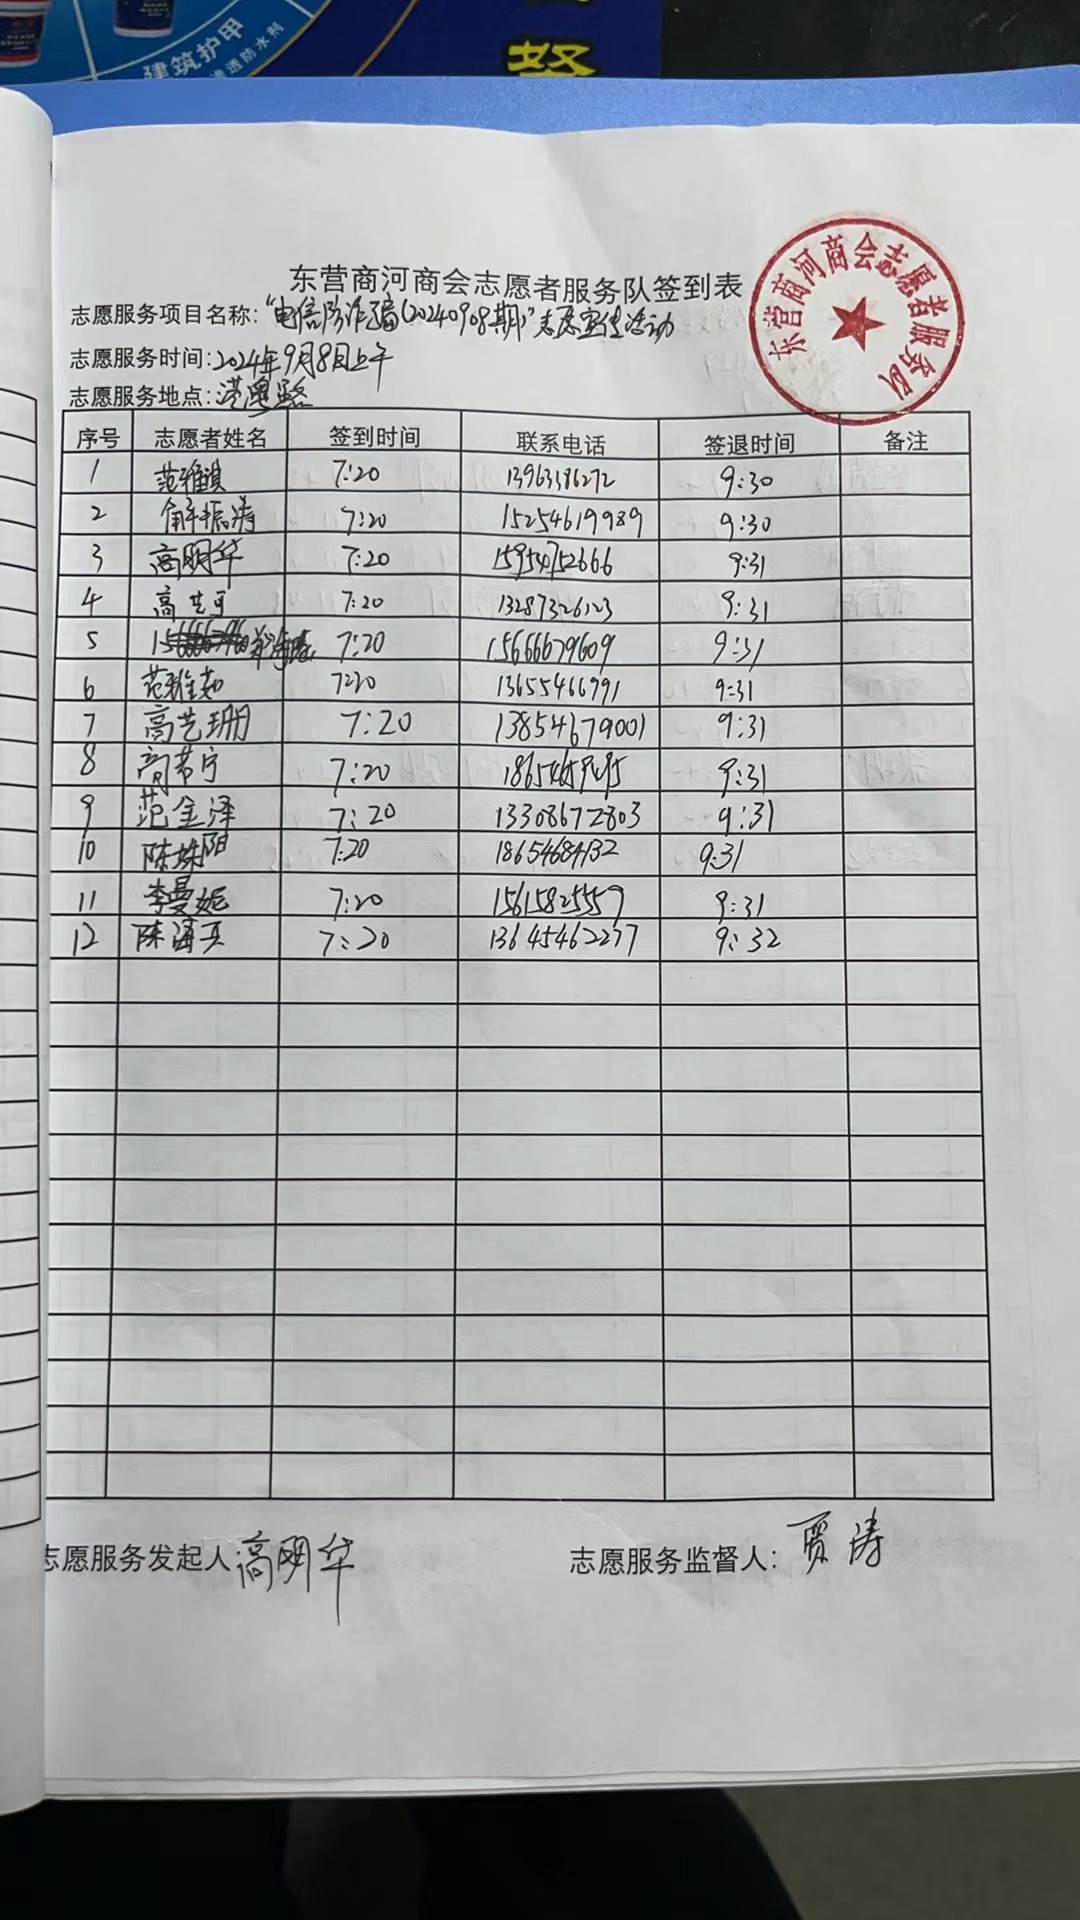 建筑护甲
渗透防水剂
东营商河商会志愿者服务队签到表
东营商河商会志愿者服务队
志愿服务项目名称:"电信防诈骗(20240908期)"志愿宣传活动
志愿服务时间:2024年9月8日上午
志愿服务地点:港粤路
序号 志愿者姓名 签到时间 联系电话 签退时间 备注
1 范雅淇 7:20 13963386272 9:30
2 解振涛 7:20 15254619989 9:30
3 高明华 7:20 15954752666 9:31
4 高艺可 7:20 13287326123 9:31
5 7:20 15666679609 9:31
6 范雅茹 7:20 13655466991 9:31
7 高艺珊 7:20 13854679001 9:31
8 7:20 9:31
9 范金泽 7:20 13308672803 9:31
10 陈姝阳 7:20 18654684132 9:31
11 李曼妮 7:20 15615825557 9:31
12 陈海兵 7:20 13645462277 9:32
志愿服务发起人:高明华 志愿服务监督人:贾涛